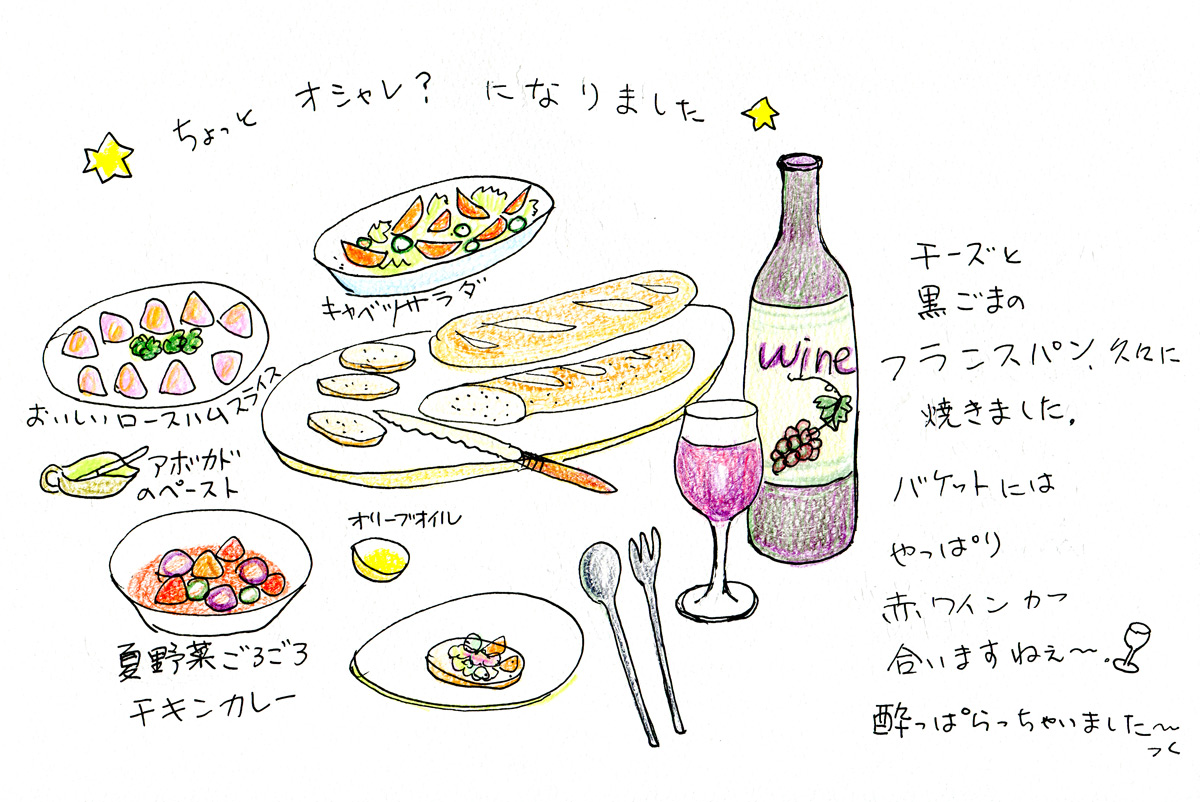 ちょっと オシャレ? になりました
キャベツサラダ
おいしいロースハムスライス
アボカド
のペースト
オリーブオイル
夏野菜ごろごろ
チキンカレー
wine
チーズと
黒ごまの
フランスパン、久々に
焼きました。
バケットには
やっぱり
赤ワインが
合いますねぇ〜。
酔っぱらっちゃいました〜
つく